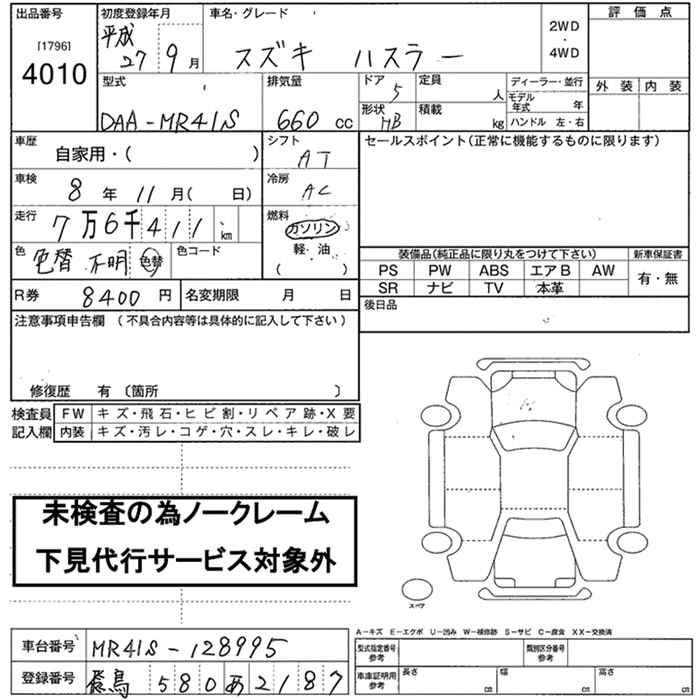 出品番号 初度登録年月 車名・グレード 評価点
[1796] 平成 2WD
4010 27 9月 スズキ ハスラー ・
4WD
型式 排気量 ドア 5 定員 人 ディーラー・並行 外装 内装
モデル年式 年
DAA-MR41S 660 cc 形状 HB 積載 kg ハンドル 左・右
車歴 シフト セールスポイント(正常に機能するものに限ります)
自家用・( ) AT
車検 冷房
8年 11月( 日) AC
走行 燃料
7万6千411 km ガソリン
色 色替 不明 色替 色コード 軽・油
( )
装備品(純正品に限り丸をつけて下さい) 新車保証書
PS PW ABS エアB AW 有・無
SR ナビ TV 本革
R券 8400円 名変期限 月 日 後日品
注意事項申告欄 (不具合内容等は具体的に記入して下さい)
修復歴 有 〔箇所 〕
検査員 FW キズ・飛石・ヒビ割・リペア跡・X要
記入欄 内装 キズ・汚レ・コゲ・穴・スレ・キレ・破レ
未検査の為ノークレーム
下見代行サービス対象外
スペア
A-キズ E-エクボ U-凹み W-補修跡 S-サビ C-腐食 XX-交換済
車台番号 MR41S-128995 型式指定番号 参考 類別区分番号 参考
登録番号 580 あ2187 車庫証明用 参考 長さ cm 幅 cm 高さ cm